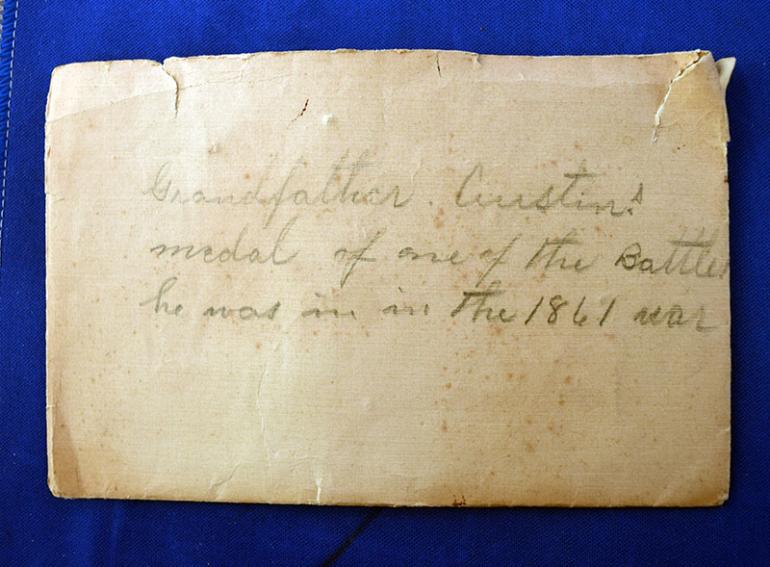 Grandfather. Austin's
medal of one of the Battles
he was in in the 1861 war